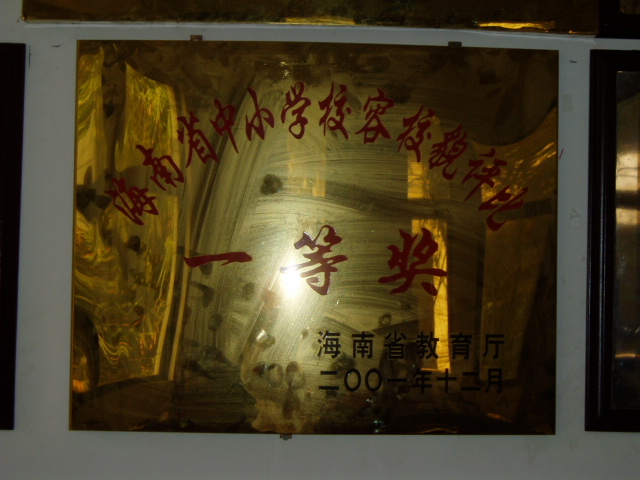 海南省中小学校容校貌评比
一等奖
海南省教育厅
二〇〇一年十二月